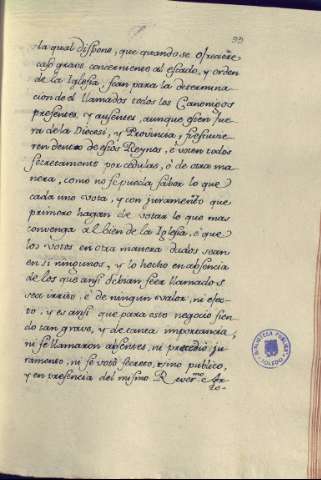 99
la qual dispone, que quando se ofreciere
caso grave concerniente al estado, y orden
de la Iglesia, sean para la determina
cion de el llamados todos los Canonigos
presentes, y ausentes, aunque esten fue
ra de la Diocesi, y Provincia, si estuvie
ren dentro de estos Reynos, e voten todos
secretamente por cedulas, ò de otra ma
nera, como no se pueda saber lo que
cada uno vota, y con juramento que
primero hagan de votar lo que mas
convenga al bien de la Iglesia, e que
los votos en otra manera dados sean
en si ningunos, y lo hecho en absencia
de los que ansi debian seer llamados
sea irrito, e de ningun valor, ni efec
to, y es ansi que para este negocio sien
do tan grave, y de tanta importancia,
ni se llamaron absentes, ni precedió ju
ramento, ni se votó secreto, sino publico,
y en presencia del mismo Rever.mo Ar
zo-
BIBLIOTECA PUBLICA
TOLEDO